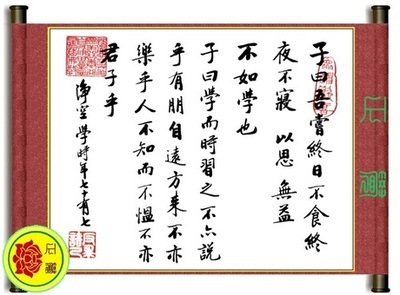 子曰吾嘗終日不食終
夜不寢 以思 無益
不如學也
子曰學而時習之不亦說
乎有朋自遠方來不亦
樂乎人不知而不慍不亦
君子乎
淨空學時年七十有七